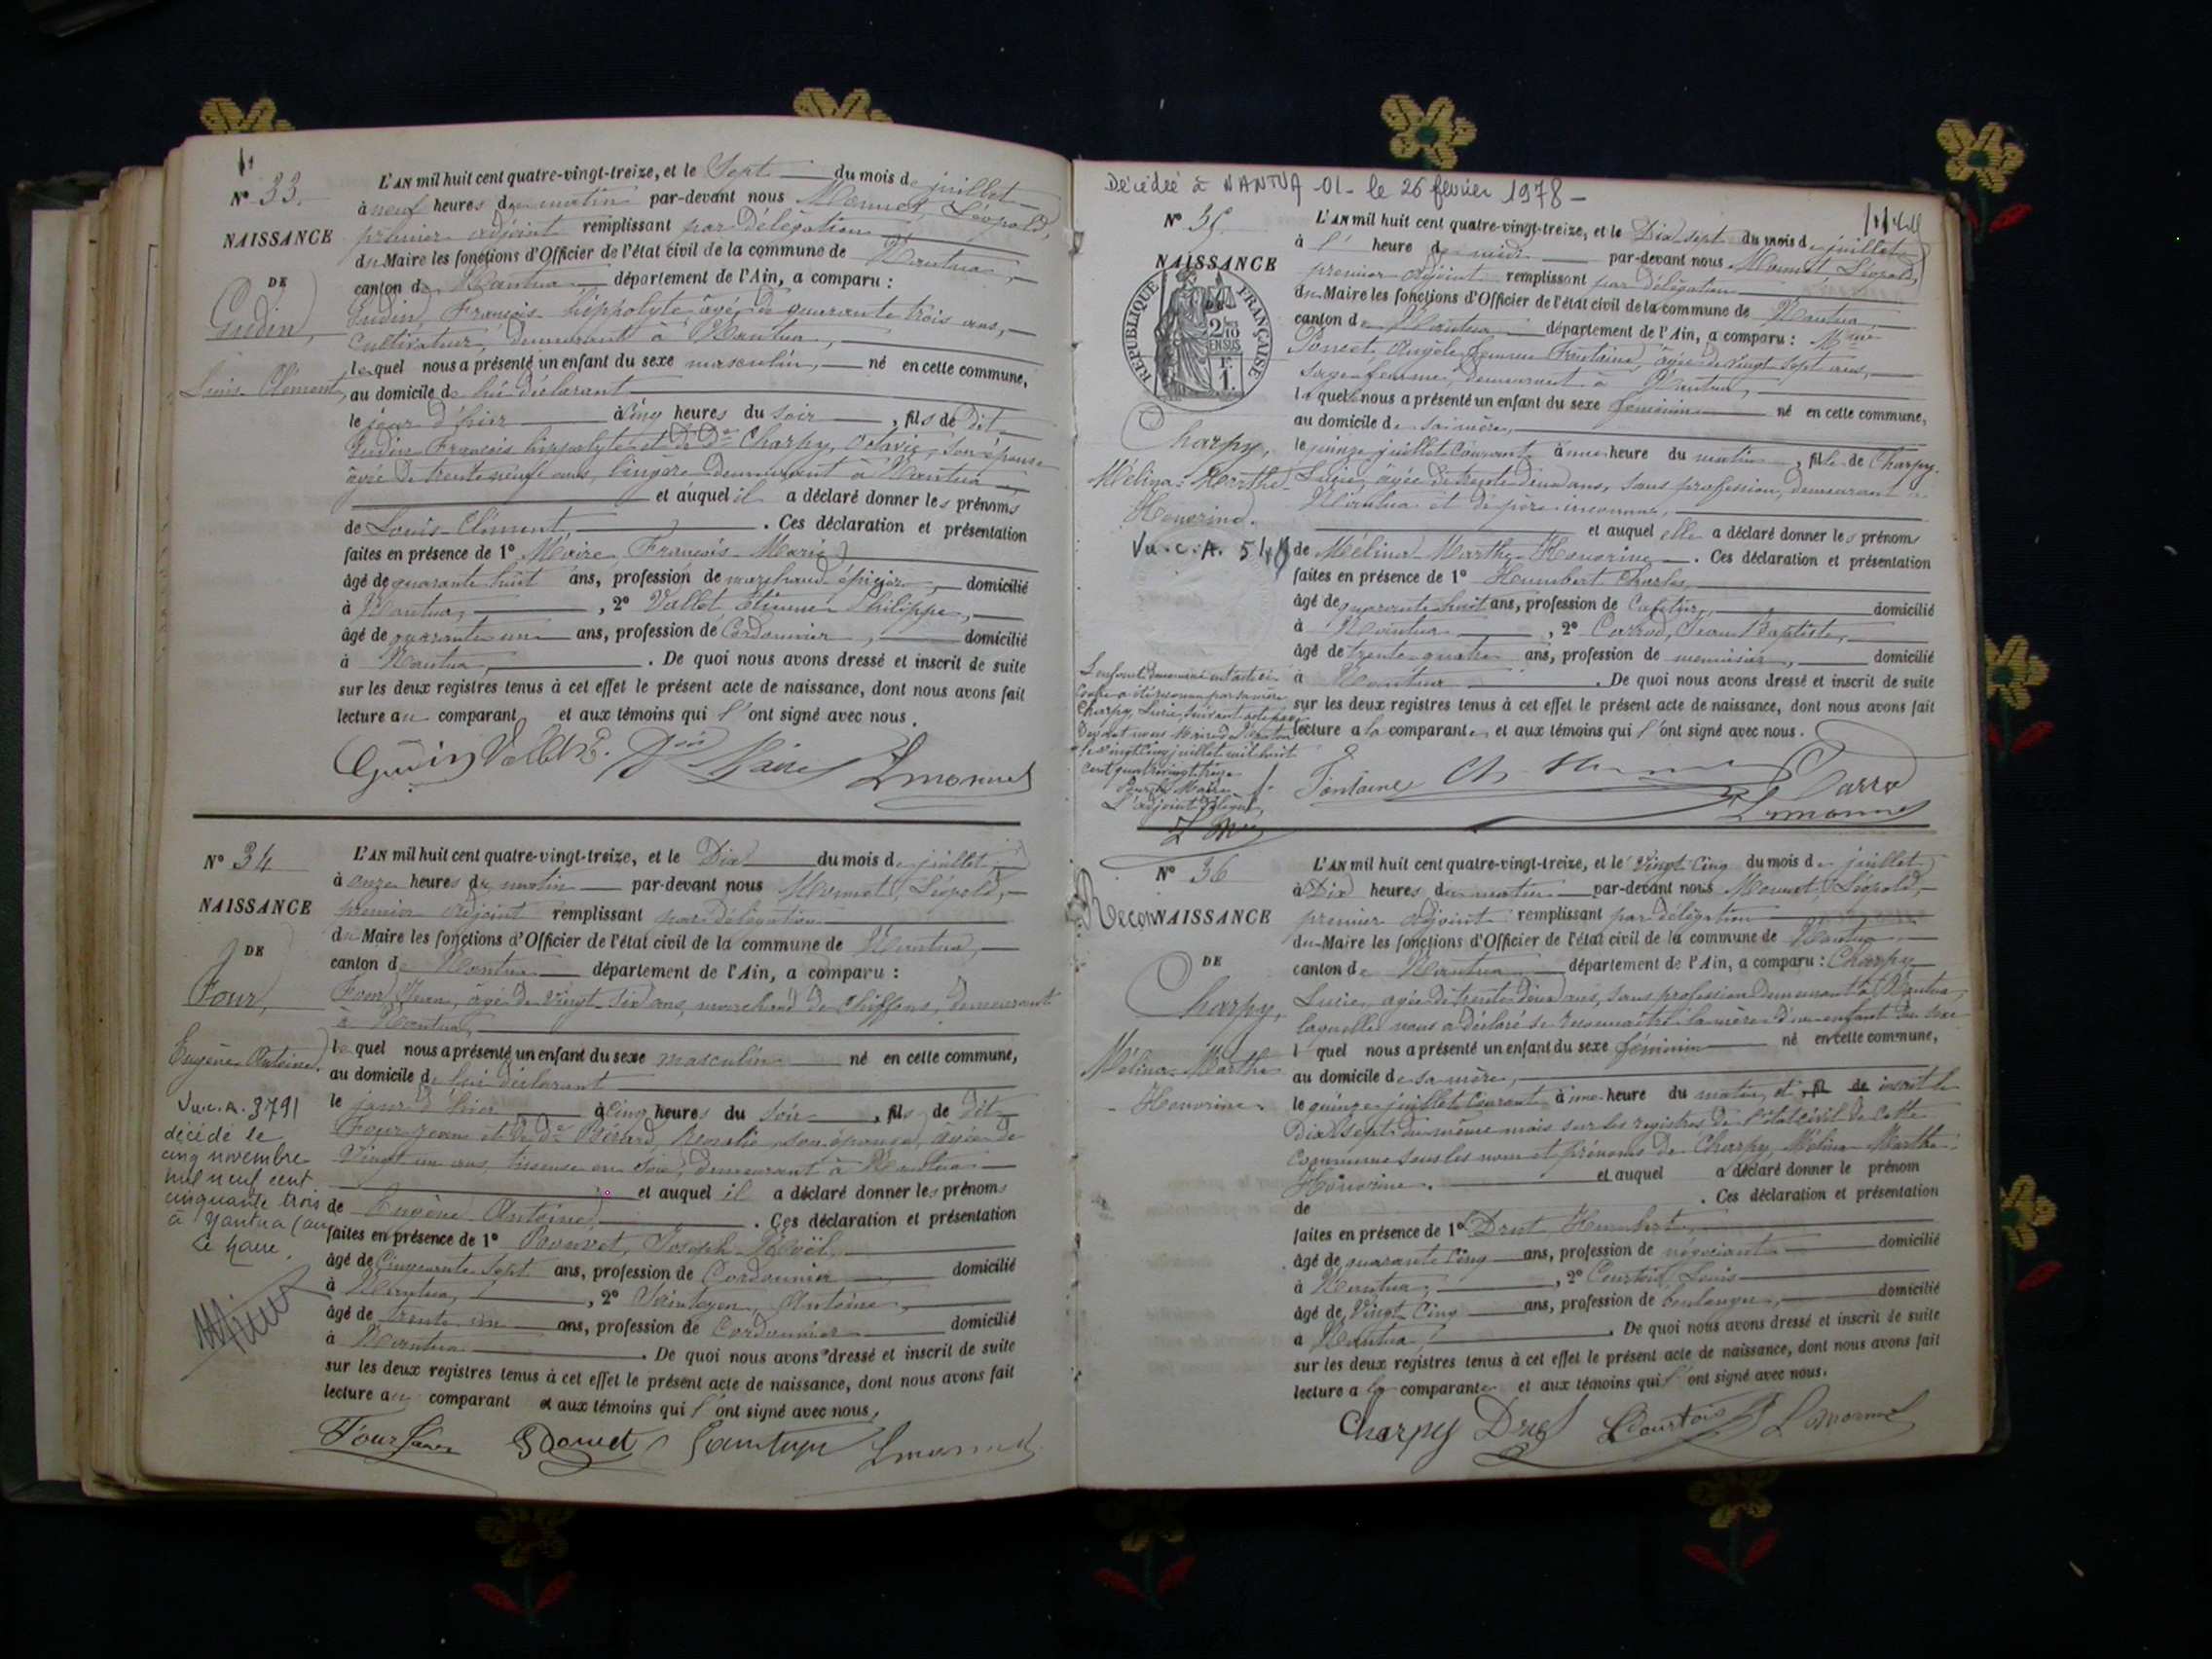 N° 33.
NAISSANCE
DE
Gudin,
Louis Clément,
L'AN mil huit cent quatre-vingt-treize, et le Sept du mois de juillet
à neuf heures du matin par-devant nous Monnet, Léopold,
premier adjoint remplissant par délégation
du Maire les fonctions d'Officier de l'état civil de la commune de Nantua,
canton de Nantua département de l'Ain, a comparu :
Gudin, François hippolyte âgé de quarante trois ans,
cultivateur, demeurant à Nantua,
lequel nous a présenté un enfant du sexe masculin, né en cette commune,
au domicile de lui déclarant
le jour d'hier à Cinq heures du soir, fils de dit
Gudin François hippolyte et de De Charpy, Octavie, son épouse
âgée de trente neuf ans, lingère demeurant à Nantua
et auquel il a déclaré donner les prénoms
de Louis-Clément, . Ces déclaration et présentation
faites en présence de 1° Maire, François-Marie
âgé de quarante huit ans, profession de marchand épicier, domicilié
à Nantua, , 2° Vallet, Etienne Philippe,
âgé de quarante un ans, profession de Cordonnier, domicilié
à Nantua, . De quoi nous avons dressé et inscrit de suite
sur les deux registres tenus à cet effet le présent acte de naissance, dont nous avons fait
lecture au comparant et aux témoins qui l'ont signé avec nous.
Gudin Maire Lmonnet
N° 34
NAISSANCE
DE
Four,
Eugène Antoine.
Vu.c.A. 3791
décédé le
cinq novembre
mil neuf cent
cinquante trois
à Nantua (ain
Le Maire.
L'AN mil huit cent quatre-vingt-treize, et le Dix du mois de juillet
à onze heures du matin par-devant nous Monnet, Léopold,
premier adjoint remplissant par délégation
du Maire les fonctions d'Officier de l'état civil de la commune de Nantua,
canton de Nantua département de l'Ain, a comparu :
Four Jean, âgé de vingt-six ans, marchand de Chiffons, demeurant
à Nantua,
lequel nous a présenté un enfant du sexe masculin né en cette commune,
au domicile de lui déclarant
le jour d'hier à Cinq heures du soir, fils de dit
Four Jean et de De Bérard, Rosalie, son épouse, âgée de
Vingt un ans, tisseuse en soie, demeurant à Nantua
et auquel il a déclaré donner les prénoms
de Eugène Antoine, . Ces déclaration et présentation
faites en présence de 1° Joseph-Noël
âgé de Cinquante Sept ans, profession de Cordonnier domicilié
à Nantua, , 2° Saintoyen, Antoine,
âgé de trente un ans, profession de Cordonnier domicilié
à Nantua . De quoi nous avons dressé et inscrit de suite
sur les deux registres tenus à cet effet le présent acte de naissance, dont nous avons fait
lecture au comparant et aux témoins qui l'ont signé avec nous.
Four Jean Lmonnet
Décédée à NANTUA -01- le 26 février 1978-
N° 35.
NAISSANCE
DE
RÉPUBLIQUE FRANÇAISE
2/10 EN SUS
1F.
Charpy,
Mélina-Marthe-
Honorine.
Vu.c.A.
L'enfant dénommé en l'acte ci
contre a été reconnu par sa mère
Charpy, Lucie, suivant acte passé
devant nous Maire de Nantua
le vingt cinq juillet mil huit
cent quatre vingt treize
Pour le Maire
L'adjoint délégué,
L'AN mil huit cent quatre-vingt-treize, et le Dix sept du mois de juillet
à l' heure de midi par-devant nous Monnet Léopold,
premier adjoint remplissant par délégation
du Maire les fonctions d'Officier de l'état civil de la commune de Nantua
canton de Nantua département de l'Ain, a comparu : Mme
Poncet Angèle femme Fontaine, âgée de vingt sept ans,
sage femme, demeurant à Nantua,
laquelle nous a présenté un enfant du sexe féminin né en cette commune,
au domicile de sa mère,
le quinze juillet Courant à une heure du matin, fille de Charpy.
Lucie, âgée de trente deux ans, sans profession, demeurant à
Nantua et de père inconnu,
et auquel elle a déclaré donner les prénoms
de Mélina-Marthe-Honorine . Ces déclaration et présentation
faites en présence de 1° Humbert Charles
âgé de quarante huit ans, profession de Cafetier, domicilié
à Nantua , 2° Carrod, Jean Baptiste,
âgé de trente quatre ans, profession de menuisier, domicilié
à Nantua . De quoi nous avons dressé et inscrit de suite
sur les deux registres tenus à cet effet le présent acte de naissance, dont nous avons fait
lecture a la comparante, et aux témoins qui l'ont signé avec nous.
Fontaine Lmonnet
N° 36
ReconNAISSANCE
DE
Charpy,
Mélina-Marthe
Honorine.
L'AN mil huit cent quatre-vingt-treize, et le Vingt Cinq du mois de juillet
à Dix heures du matin par-devant nous Monnet, Léopold,
premier adjoint remplissant par délégation
du Maire les fonctions d'Officier de l'état civil de la commune de Nantua
canton de Nantua département de l'Ain, a comparu : Charpy
Lucie, âgée de trente deux ans, sans profession demeurant à Nantua,
laquelle nous a déclaré se reconnaître la mère d'un enfant du sexe
l quel nous a présenté un enfant du sexe féminin né en cette commune,
au domicile de sa mère,
le quinze juillet Courant à une heure du matin, et fil de inscrit le
Dix sept du même mois sur les registres de l'état civil de cette
Commune sous les nom et prénoms de Charpy, Mélina-Marthe-
Honorine. et auquel a déclaré donner le prénom
de . Ces déclaration et présentation
faites en présence de 1° Drut Humbert,
âgé de quarante Cinq ans, profession de négociant domicilié
à Nantua, , 2° Courtois Louis
âgé de Vingt Cinq ans, profession de boulanger, domicilié
à Nantua, . De quoi nous avons dressé et inscrit de suite
sur les deux registres tenus à cet effet le présent acte de naissance, dont nous avons fait
lecture a la comparante et aux témoins qui l'ont signé avec nous.
Charpy Drut LCourtois Lmonnet